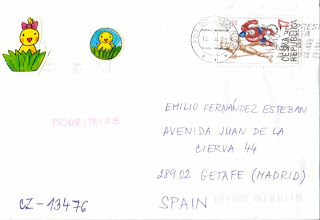 ČESKÁ REPUBLIKA
PRIORITAIRE
EMILIO FERNÁNDEZ ESTEBAN
AVENIDA JUAN DE LA
CIERVA 44
28902 GETAFE (MADRID)
SPAIN
CZ-13476